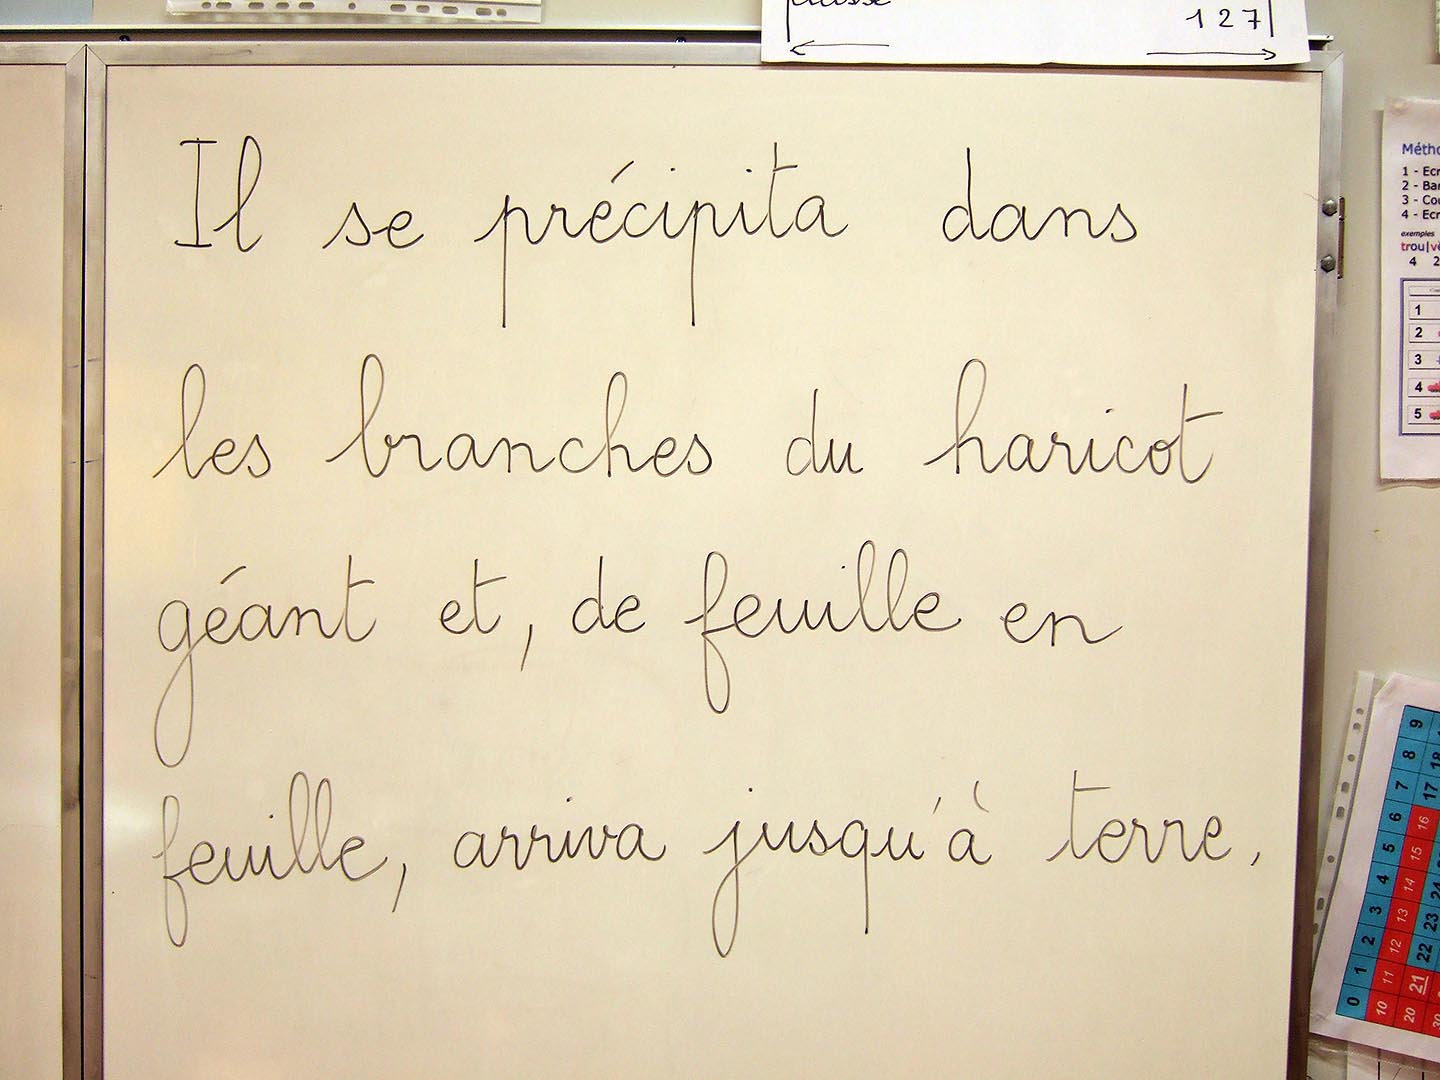 classe
127
Il se précipita dans
les branches du haricot
géant et, de feuille en
feuille, arriva jusqu'à terre.
1 - Ecr
2 - Bar
3 - Cou
4 - Ecr
exemples
trou|v
4 2
1
2
3
4
5
9
8
7
6
5
4
3
2
1
0
17
16
15
14
13
12
11
10
24
23
22
21
20